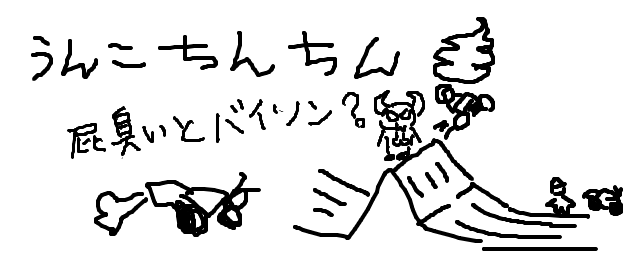 うんこちんちん
屁臭いとバイソン?